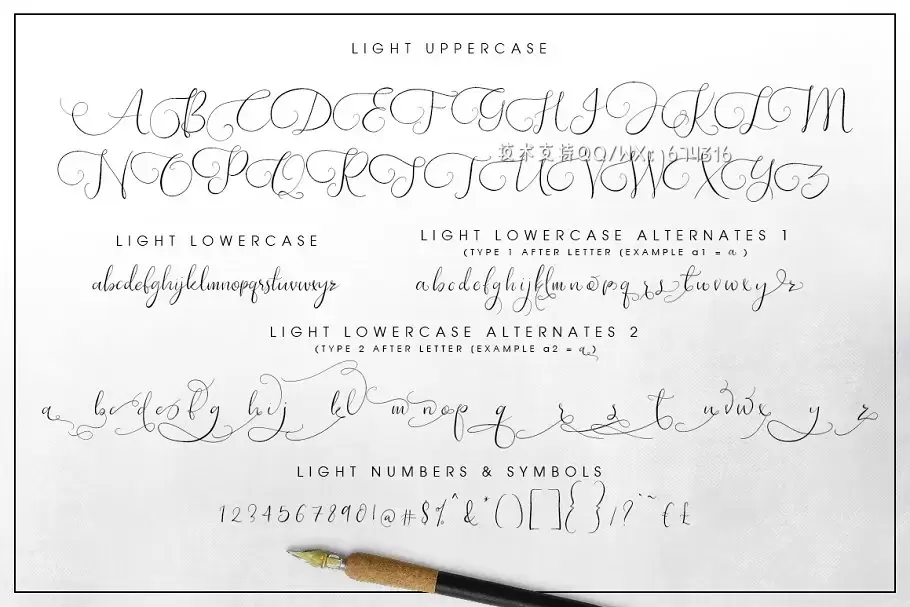 LIGHT UPPERCASE
ABCDEFGHIJKLM
技术支持QQ/WX: 674316
NOPQRSTUVWXYZ
LIGHT LOWERCASE
abcdefghijklmnopqrstuvwxyz
LIGHT LOWERCASE ALTERNATES 1
(TYPE 1 AFTER LETTER (EXAMPLE a1 = a )
abcdefghijklmnopqrstuvwxyz
LIGHT LOWERCASE ALTERNATES 2
(TYPE 2 AFTER LETTER (EXAMPLE a2 = a)
a bcdefg hij kl mnop q r s t uvwx y z
LIGHT NUMBERS & SYMBOLS